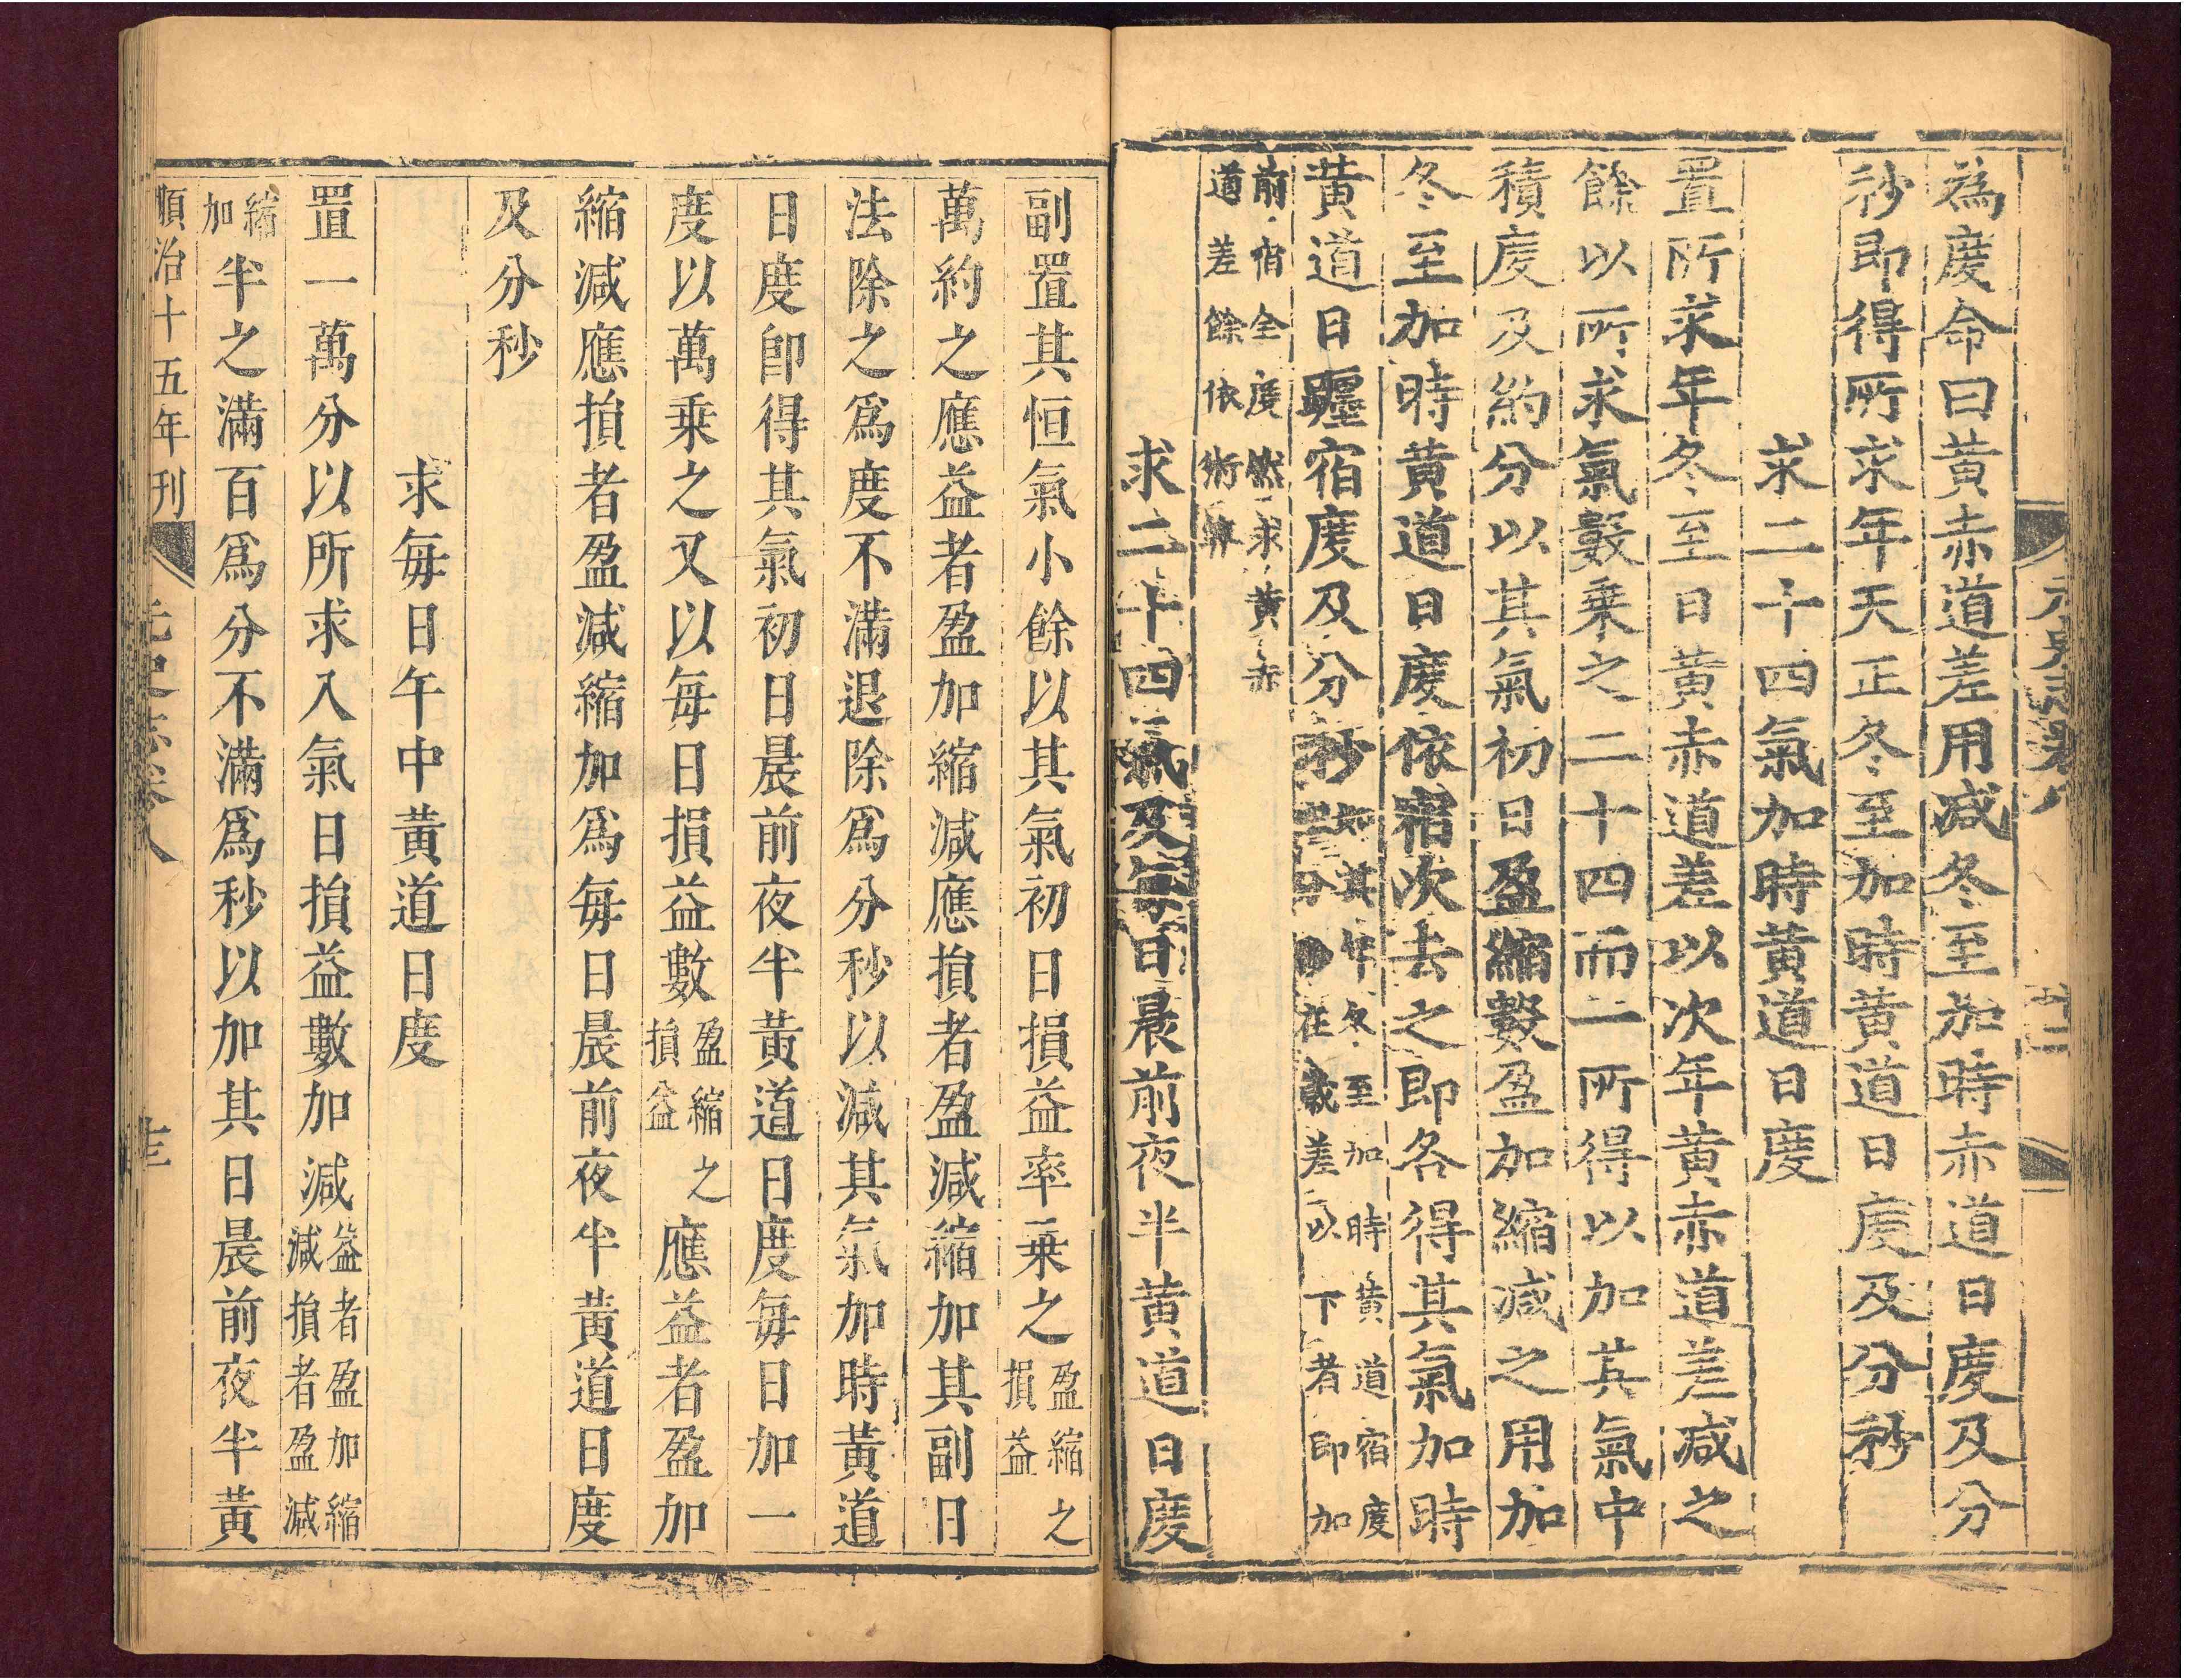 為度命曰黄赤道差用减冬至加時赤道日度及分
秒即得所求年天正冬至加時黄道日度及分秒
求二十四氣加時黄道日度
置所求年冬至日黄赤道差以次年黄赤道差减之
餘以所求氣數乗之二十四而一所得以加其氣中
積度及約分以其氣初日盈縮數盈加縮减之用加
冬至加時黄道日度依宿次去之即各得其氣加時
黄道日躔宿度及分秒如其年冬至加時黄道宿度
在歲差以下者即加
前宿全度然求黄赤
道差餘依術算
求二十四氣及每日晨前夜半黄道日度
副置其恒氣小餘以其氣初日損益率乗之盈縮之
損益
萬約之應益者盈加縮減應損者盈減縮加其副日
法除之爲度不滿退除爲分秒以減其氣加時黃道
日度即得其氣初日晨前夜半黃道日度每日加一
度以萬乗之又以每日損益數盈縮之
損益
應益者盈加
縮減應損者盈減縮加爲每日晨前夜半黃道日度
及分秒
求每日午中黃道日度
置一萬分以所求入氣日損益數加減益者盈加縮
減損者盈減
縮
加
半之滿百爲分不滿爲秒以加其日晨前夜半黃
順治十五年刊
元史志卷八